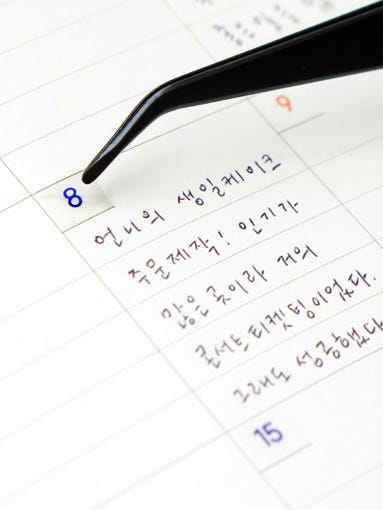 9
8
언니의 생일케이크
주문제작! 인기가
많은 곳이라 거의
콘서트 티켓팅이었다.
그래도 성공했다
15